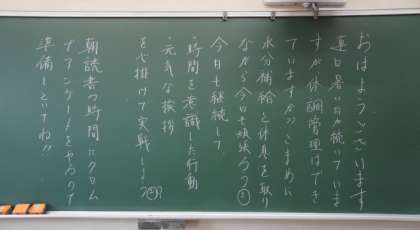 おはようございます
連日暑い日が続いていま
すが体調管理はでき
ていますか?こまめに
水分補給と休息を取り
ながら今日も頑張ろう
今日も継続して
・時間を意識した行動
・元気な挨拶
を心掛けて実戦しよう
朝読書の時間にクロム
でアンケートをやるので
準備しといてね!!